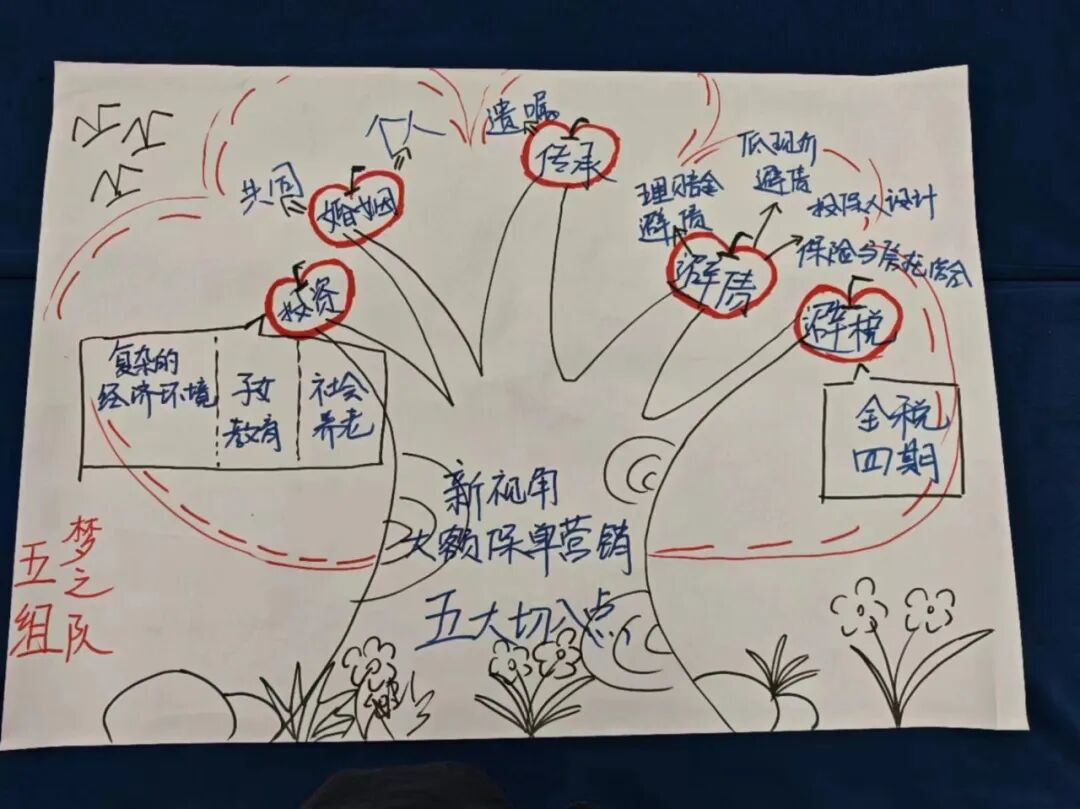 共同
个人
婚姻
遗嘱
传承
理赔金
避债
低现价
避债
投保人设计
避债
投资
避税
复杂的
经济环境
子女
教育
社会
养老
全税
四期
新视角
大额保单营销
五大切入点
五组
梦之队